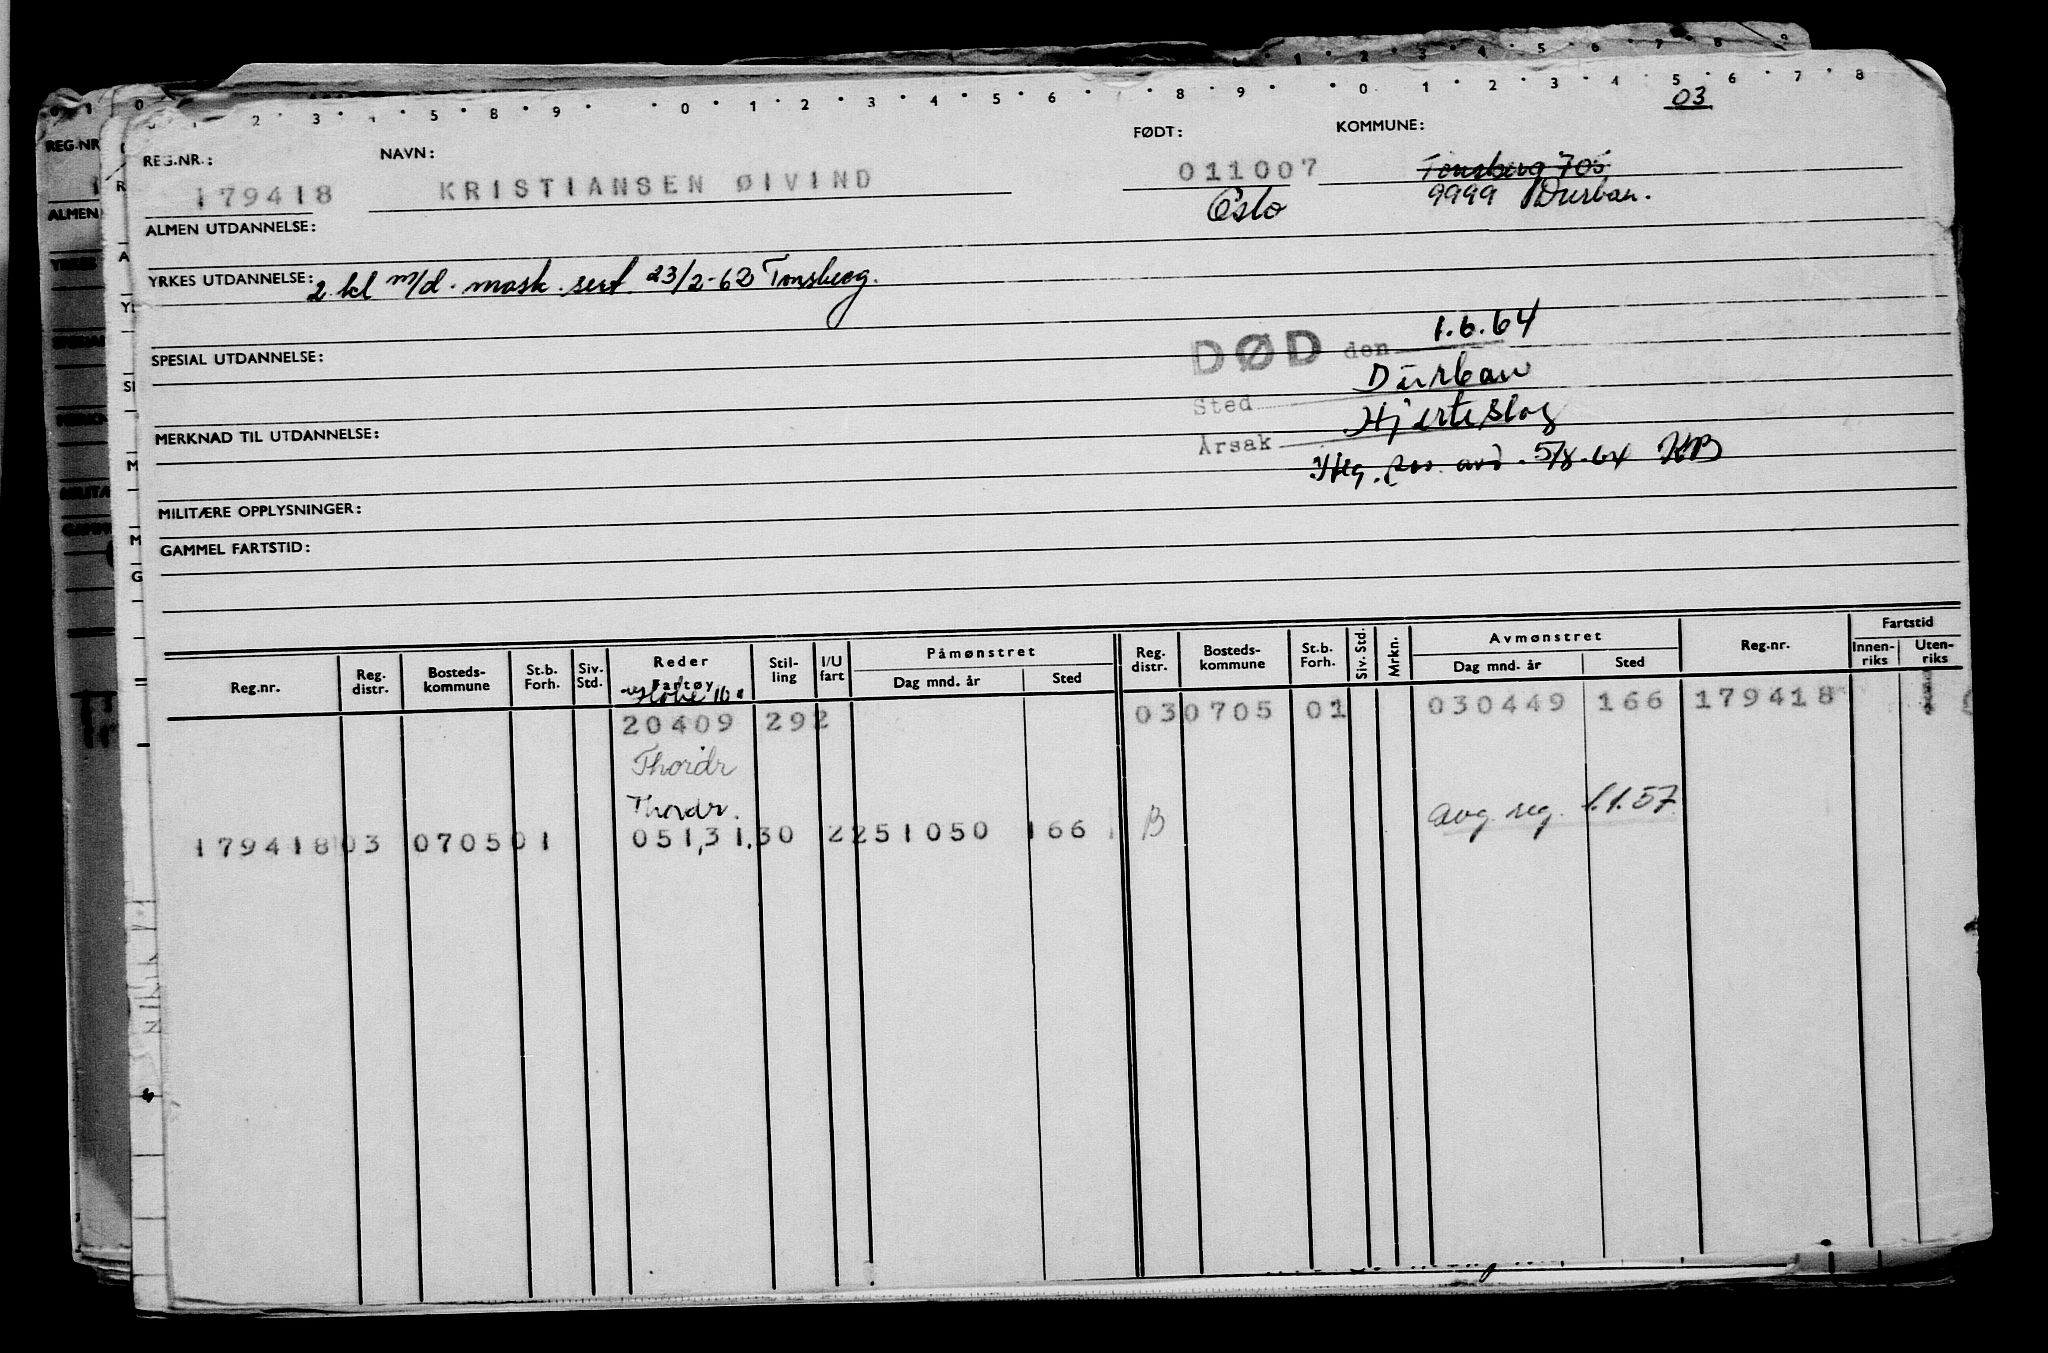 03
REG.NR.: NAVN: FØDT: KOMMUNE:
179418 KRISTIANSEN ØIVIND 011007 Tønsberg 705
Oslo 9999 Durban.
ALMEN UTDANNELSE:
YRKES UTDANNELSE: 2 kl m/d. mask. sert. 23/2-62 Tønsberg.
SPESIAL UTDANNELSE:
DØD den 1.6.64
Sted Durban
Årsak Hjerteslag
5/8-64 KB
MERKNAD TIL UTDANNELSE:
MILITÆRE OPPLYSNINGER:
GAMMEL FARTSTID:
Reg.nr. Reg. distr. Bosteds- kommune St.b. Forh. Siv. Std. Reder Fartøy Stil- ling I/U fart Påmønstret Dag mnd. år Sted Reg. distr. Bosteds- kommune St.b. Forh. Siv. Std. Mrkn. Avmønstret Dag mnd. år Sted Reg.nr. Fartstid Innen- riks Uten- riks
20409 292 030705 01 030449 166 179418
Thordr
Thordr. B avg. reg. 1.1.57
179418 03 0705 01 05131.30 2 251050 166